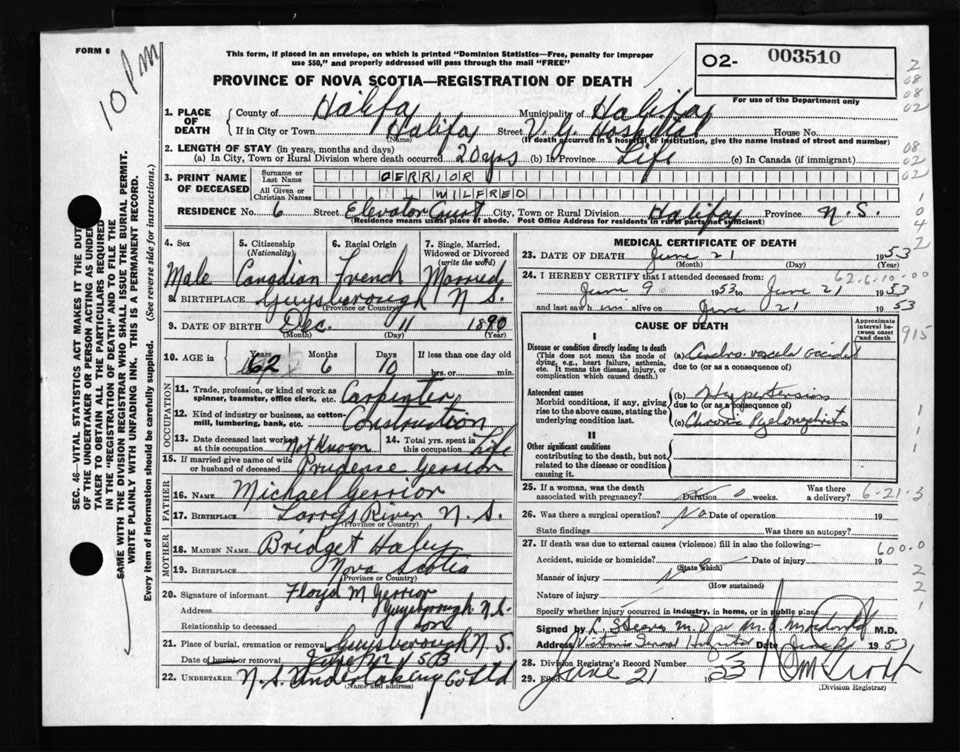 FORM 6
10 PM
This form, if placed in an envelope, on which is printed "Dominion Statistics—Free, penalty for improper
use $50," and properly addressed will pass through the mail "FREE"
PROVINCE OF NOVA SCOTIA—REGISTRATION OF DEATH
02- 003510
For use of the Department only
1. PLACE OF DEATH
County of Halifax Municipality of Halifax
If in City or Town Halifax Street V. G. Hospital House No.
(Name) (If death occurred in a hospital or institution, give the name instead of street and number)
2. LENGTH OF STAY (in years, months and days)
(a) In City, Town or Rural Division where death occurred 20 yrs (b) In Province Life (c) In Canada (if immigrant)
3. PRINT NAME OF DECEASED
Surname or Last Name GERRIOR
All Given or Christian Names WILFRED
RESIDENCE No. 6 Street Elevator Court City, Town or Rural Division Halifax Province N.S.
(Residence means usual place of abode. Post Office Address for residents in rural parts not sufficient)
4. Sex 5. Citizenship (Nationality) 6. Racial Origin 7. Single, Married, Widowed or Divorced (write the word)
Male Canadian French Married
8. BIRTHPLACE Guysborough N.S.
(Province or Country)
9. DATE OF BIRTH Dec. 11 1890
(Month) (Day) (Year)
10. AGE in Years Months Days If less than one day old
62 6 10 hrs. or min.
OCCUPATION
11. Trade, profession, or kind of work as spinner, teamster, office clerk, etc. Carpenter
12. Kind of industry or business, as cotton-mill, lumbering, bank, etc. Construction
13. Date deceased last worked at this occupation Not Known 14. Total yrs. spent in this occupation Life
15. If married give name of wife or husband of deceased Prudence Gerrior
FATHER
16. NAME Michael Gerrior
17. BIRTHPLACE Larrys River N.S.
(Province or Country)
MOTHER
18. MAIDEN NAME Bridget Haley
19. BIRTHPLACE Nova Scotia
(Province or Country)
20. Signature of informant Floyd M Gerrior
Address Guysborough N.S.
Relationship to deceased son
21. Place of burial, cremation or removal Guysborough N.S.
Date of burial or removal June 22 1953
22. UNDERTAKER N.S. Undertaking Co Ltd
(Name and address)
MEDICAL CERTIFICATE OF DEATH
23. DATE OF DEATH June 21 1953
(Month) (Day)
24. I HEREBY CERTIFY that I attended deceased from
June 9 1953 to June 21 1953
and last saw him alive on June 21 1953
CAUSE OF DEATH
Approximate interval between onset and death
I
Disease or condition directly leading to death
(This does not mean the mode of dying, e.g., heart failure, asthenia, etc. It means the disease, injury, or complication which caused death.)
(a)
due to (or as a consequence of)
Antecedent causes
Morbid conditions, if any, giving rise to the above cause, stating the underlying condition last.
(b) Hypertension
due to (or as a consequence of)
(c) Chronic Pyelonephritis
II
Other significant conditions contributing to the death, but not related to the disease or condition causing it.
25. If a woman, was the death associated with pregnancy? Duration weeks. Was there a delivery?
26. Was there a surgical operation? No Date of operation 19
State findings Was there an autopsy?
27. If death was due to external causes (violence) fill in also the following:—
Accident, suicide or homicide? Date of injury 19
(State which)
Manner of injury
(How sustained)
Nature of injury
Specify whether injury occurred in industry, in home, or in public place
Signed by M.D.
Address Victoria General Hospital Date June 21 1953
28. Division Registrar's Record Number
29. Filed June 21 1953
(Division Registrar)
62-6-10-00
915
6-21-3
600.0
SEC. 46—VITAL STATISTICS ACT MAKES IT THE DUTY
OF THE UNDERTAKER OR PERSON ACTING AS UNDER-
TAKER TO OBTAIN ALL THE PARTICULARS REQUIRED
IN THE "REGISTRATION OF DEATH" AND TO FILE THE
SAME WITH THE DIVISION REGISTRAR WHO SHALL ISSUE THE BURIAL PERMIT.
WRITE PLAINLY WITH UNFADING INK. THIS IS A PERMANENT RECORD.
Every item of information should be carefully supplied. (See reverse side for instructions.)